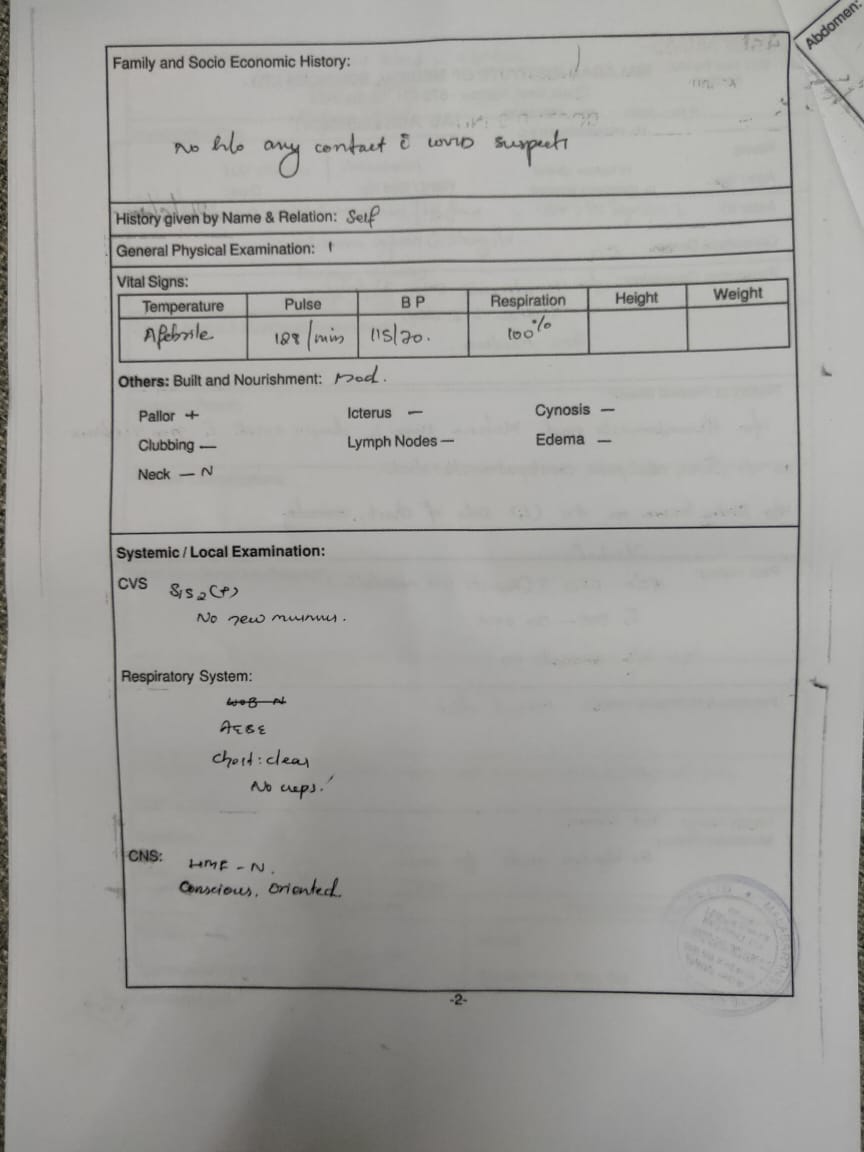 Abdomen:
Family and Socio Economic History:
No h/o any contact c̄ COVID suspects
History given by Name & Relation: Self
General Physical Examination:
Vital Signs:
Temperature Pulse B P Respiration Height Weight
Afebrile /min 100%
Others: Built and Nourishment: Mod.
Pallor + Icterus — Cynosis —
Clubbing — Lymph Nodes — Edema —
Neck — N
Systemic / Local Examination:
CVS S1S2(+)
No new murmur.
Respiratory System:
WOB N
AEBE
Chest: clear
No creps.
CNS: HMF - N.
Conscious, Oriented.
-2-